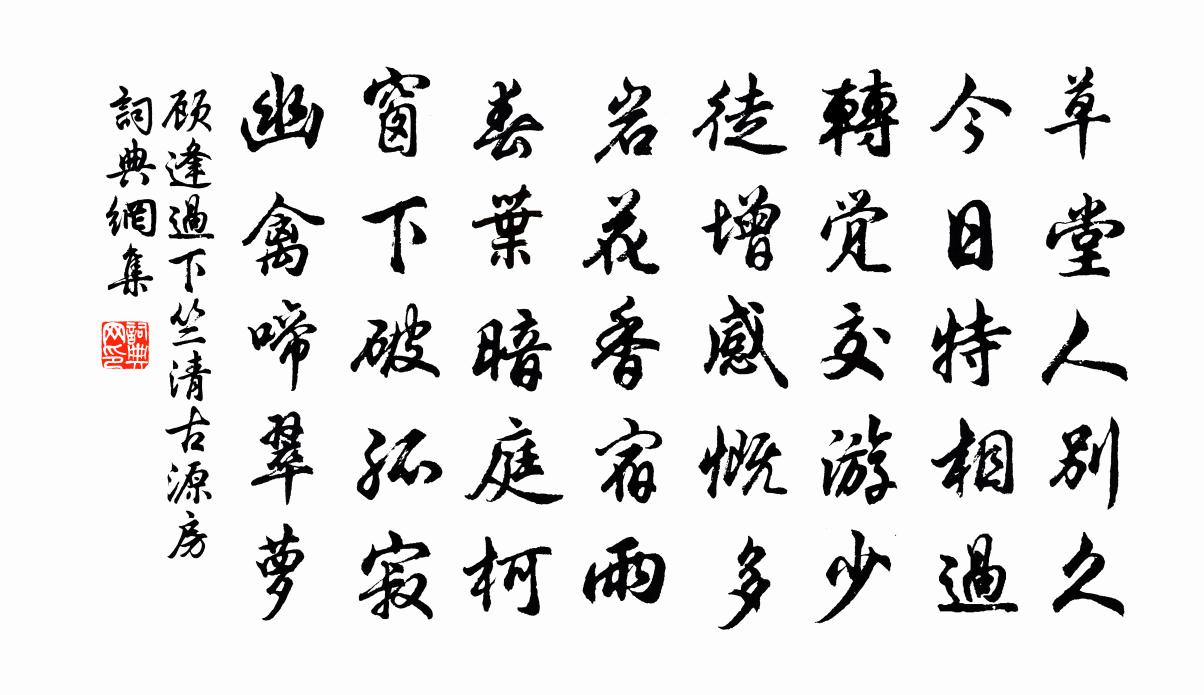 草堂人別久
今日特相過
轉覺交游少
徒增感慨多
岩花香宿雨
春葉暗庭柯
窗下破孤寂
幽禽啼翠蘿
顾逢過下竺清古源房
詞典網集
詞典网印